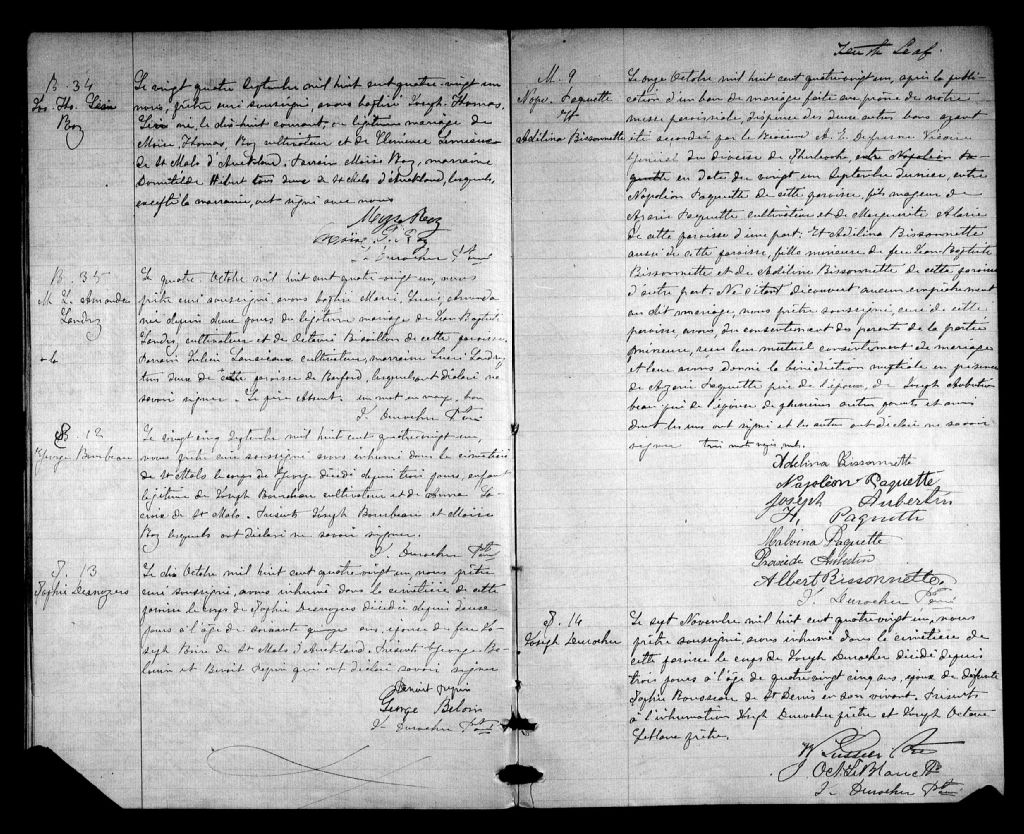 B. 34
Jos. Ths. Léon
Roy
Le vingt quatre Septembre mil huit cent quatre vingt un
nous, prêtre curé soussigné, avons baptisé Joseph Thomas
né, le dix huit courant, du légitime mariage de
Moïse Thomas Roy cultivateur et de Clémence Lemieux
de St Malo d'Auckland. Parrain Moïse Roy, marraine
Domitilde Hébert tous deux de St Malo d'Auckland, lesquels,
excepté la marraine, ont signé avec nous
Moyse Roy
Moïse T. Roy
J. Durocher Ptre
B. 35
M. L. Amanda
Landry
Le quatre Octobre mil huit cent quatre vingt un, nous
prêtre curé soussigné avons baptisé Marie, Lucie, Amanda
née depuis deux jours du légitime mariage de Jean Baptiste
Landry, cultivateur et de Bisaillon de cette paroisse.
Parrain cultivateur, marraine Lucie Landry
tous deux de cette paroisse de Barford, lesquels ont déclaré ne
savoir signer. Le père absent. un mot en marge, bon
J. Durocher Ptre
S. 12
George Bourbeau
Le vingt cinq Septembre mil huit cent quatre vingt un,
nous prêtre curé soussigné avons inhumé dans le cimetière
de St Malo le corps de George décédé depuis trois jours, enfant
légitime de Joseph Bourbeau cultivateur et de
de St Malo. Présents Joseph Bourbeau et Moïse
Roy lesquels ont déclaré ne savoir signer.
J. Durocher Ptre
S. 13
Sophie Desnoyers
Le dix Octobre mil huit cent quatre vingt un, nous prêtre
curé soussigné, avons inhumé dans le cimetière de cette
paroisse le corps de Sophie Desnoyers décédée depuis deux
jours à l'âge de soixante quinze ans, épouse de feu Jo-
seph de St Malo d'Auckland. Présents George Be-
louin et Benoit qui ont déclaré savoir signer
Benoit
George Beloin
J. Durocher Ptre
Tenth Leaf.
M. 9
Napo. Paquette
&
Adélina Bissonnette
Le onze Octobre mil huit cent quatre vingt un, après la publi-
cation d'un ban de mariage faite au prône de notre
messe paroissiale, dispense des deux autres bans ayant
été accordée par le Révérend A. E. Dufresne Vicaire
Général du diocèse de Sherbrooke, entre Napoléon Pa-
quette en date du vingt un Septembre dernier, entre
Napoléon Paquette de cette paroisse, fils majeur de
Azarie Paquette cultivateur et de Marguerite Alarie
de cette paroisse d'une part. Et Adélina Bissonnette
aussi de cette paroisse, fille mineure de feu Jean Baptiste
Bissonnette et de Adeline Bissonnette de cette paroisse
d'autre part. Ne s'étant découvert aucun empêchement
au dit mariage, nous prêtre soussigné, curé de cette
paroisse avons, du consentement des parents de la partie
mineure, reçu leur mutuel consentement de mariage
et leur avons donné la bénédiction nuptiale en présence
de Azarie Paquette père de l'époux, de Joseph Aubertin
beau père de l'épouse de plusieurs autres parents et amis
dont les uns ont signé et les autres ont déclaré ne savoir
signer. trois mots rayés nuls.
Adelina Bissonnette
Napoléon Paquette
Joseph Aubertin
H. Paquette
Malvina Paquette
Praxede Aubertin
Albert Bissonnette
J. Durocher Ptre
S. 14
Joseph Durocher
Le sept Novembre mil huit cent quatre vingt un, nous
prêtre soussigné avons inhumé dans le cimetière de
cette paroisse le corps de Joseph Durocher décédé depuis
trois jours à l'âge de quatre vingt cinq ans, époux de défunte
Sophie Rousseau de St Denis en son vivant. Présents
à l'inhumation Joseph Durocher prêtre et Joseph Octave
Leblanc prêtre.
Oct. LeBlanc Ptre
J. Durocher Ptre